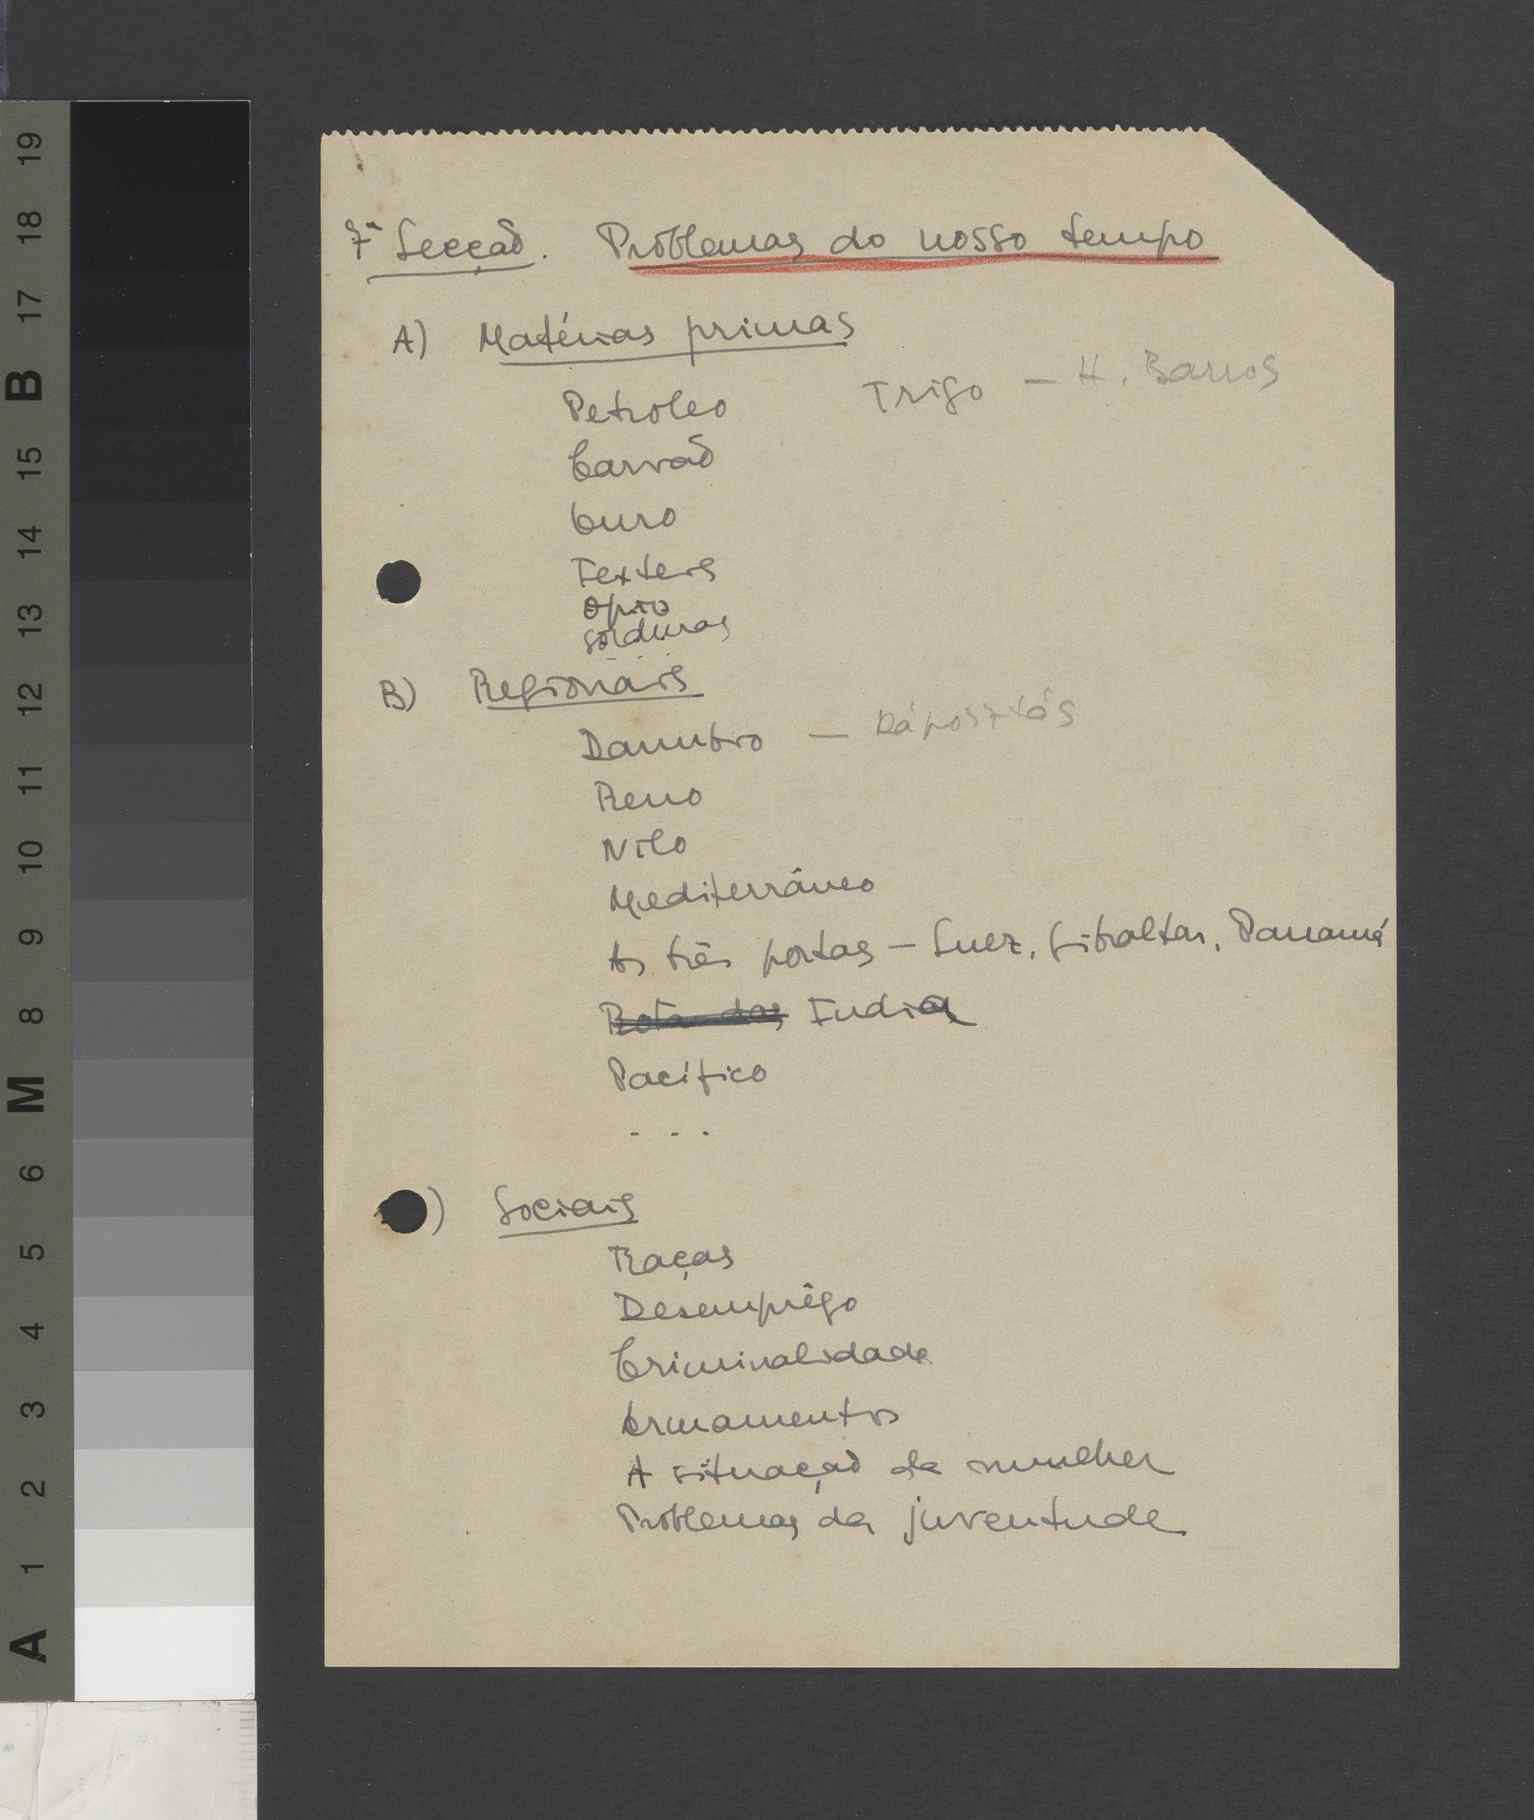 7ª Secção. Problemas do nosso tempo
A) Matérias primas
Petroleo Trigo — H. Barros
Carvão
Ouro
Texteis
Opio
Gorduras
B) Regionais
Danubio —
Reno
Nilo
Mediterrâneo
As três portas — Suez, Gibraltar, Panamá
Rota das India
Pacífico
. . .
) Sociais
Raças
Desemprêgo
Criminalidade
Armamentos
A situação da mulher
Problemas da juventude
19
18
17
B
15
14
13
12
11
10
9
8
M
6
5
4
3
2
1
A